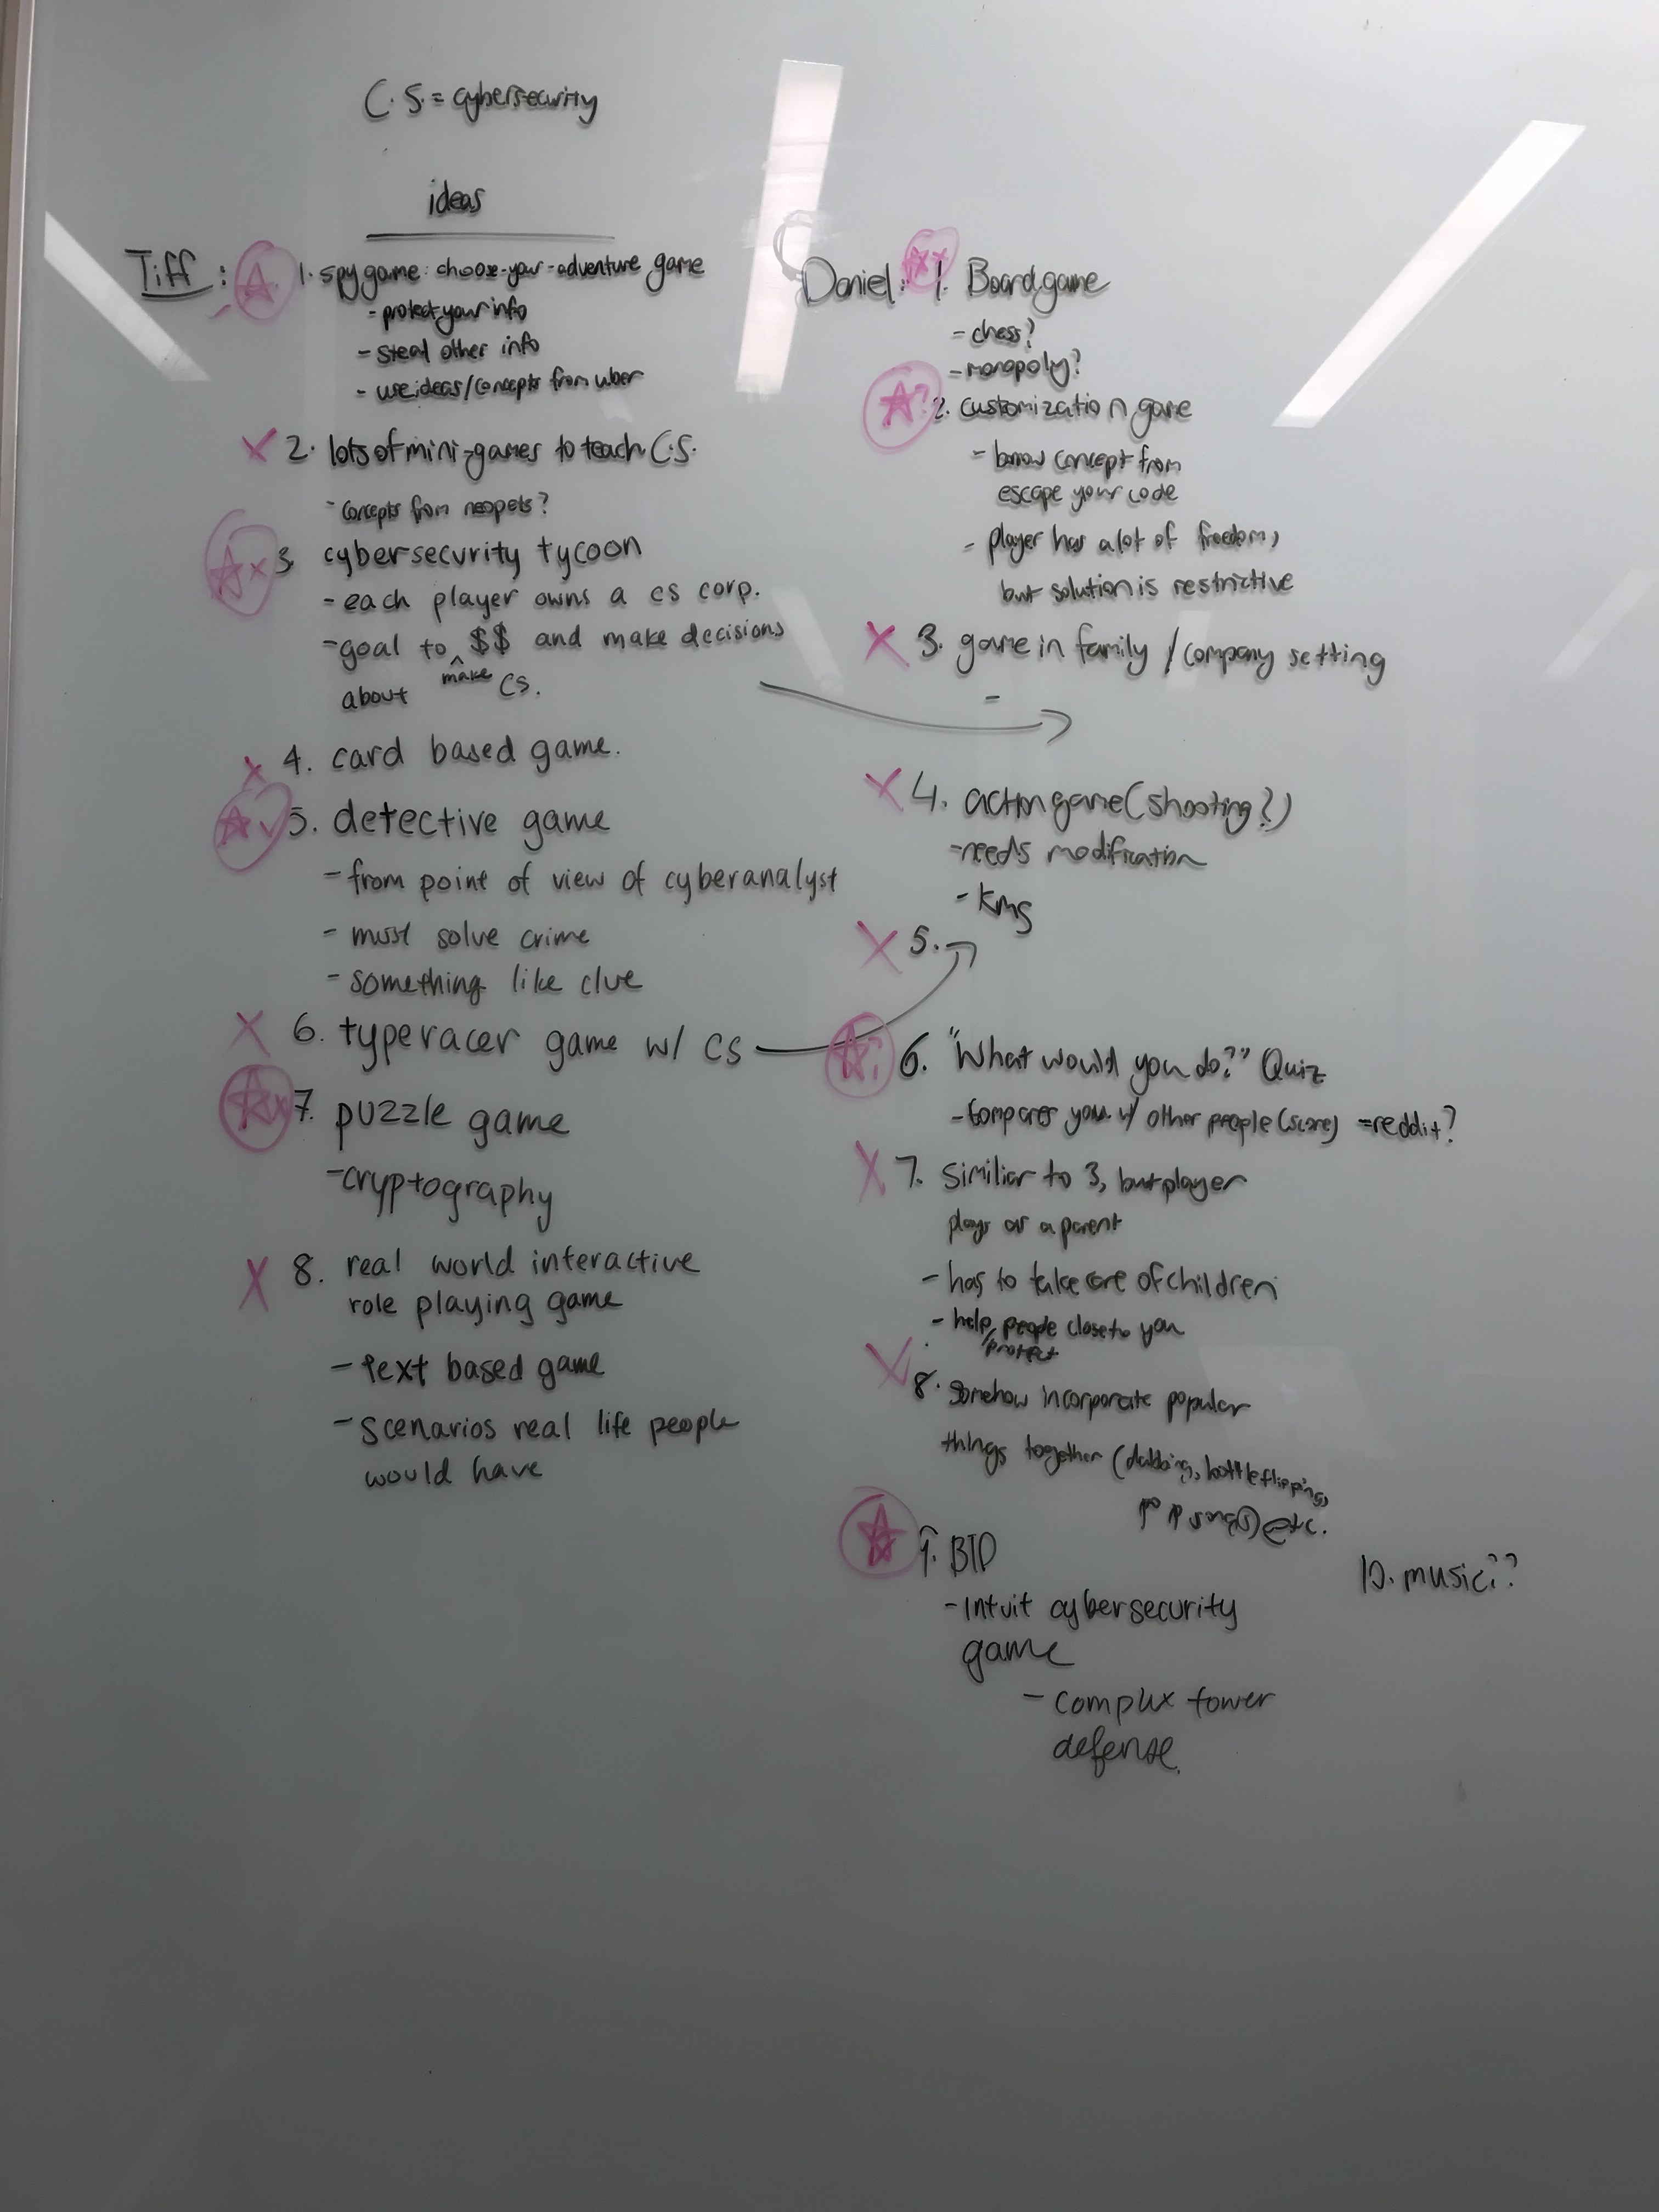 C.S. = cybersecurity
ideas
Tiff:
1. spy game: choose-your-adventure game
- protect your info
- steal other info
- use ideas/concepts from uber
X 2. lots of mini-games to teach C.S.
- concepts from neopets?
x 3. cybersecurity tycoon
- each player owns a cs corp.
- goal to make $$ and make decisions
about CS.
x 4. card based game.
5. detective game
- from point of view of cyberanalyst
- must solve crime
- something like clue
X 6. typeracer game w/ CS
7. puzzle game
- cryptography
X 8. real world interactive
role playing game
- text based game
- scenarios real life people
would have
Daniel: 1. Board game
- chess?
- monopoly?
? 2. customization game
- borrow concept from
escape your code
- player has a lot of freedom,
but solution is restrictive
X 3. game in family / company setting
-
X 4. action game (shooting?)
- needs modification
- kms
X 5.
? 6. "What would you do?" Quiz
- compares you w/ other people (score) = reddit?
X 7. similiar to 3, but player
plays as a parent
- has to take care of children
- help/protect people close to you
X 8. somehow incorporate popular
things together (dabbing, bottleflipping,
pop songs) etc.
9. BTD
- Intuit cybersecurity
game
- complex tower
defense.
10. music??